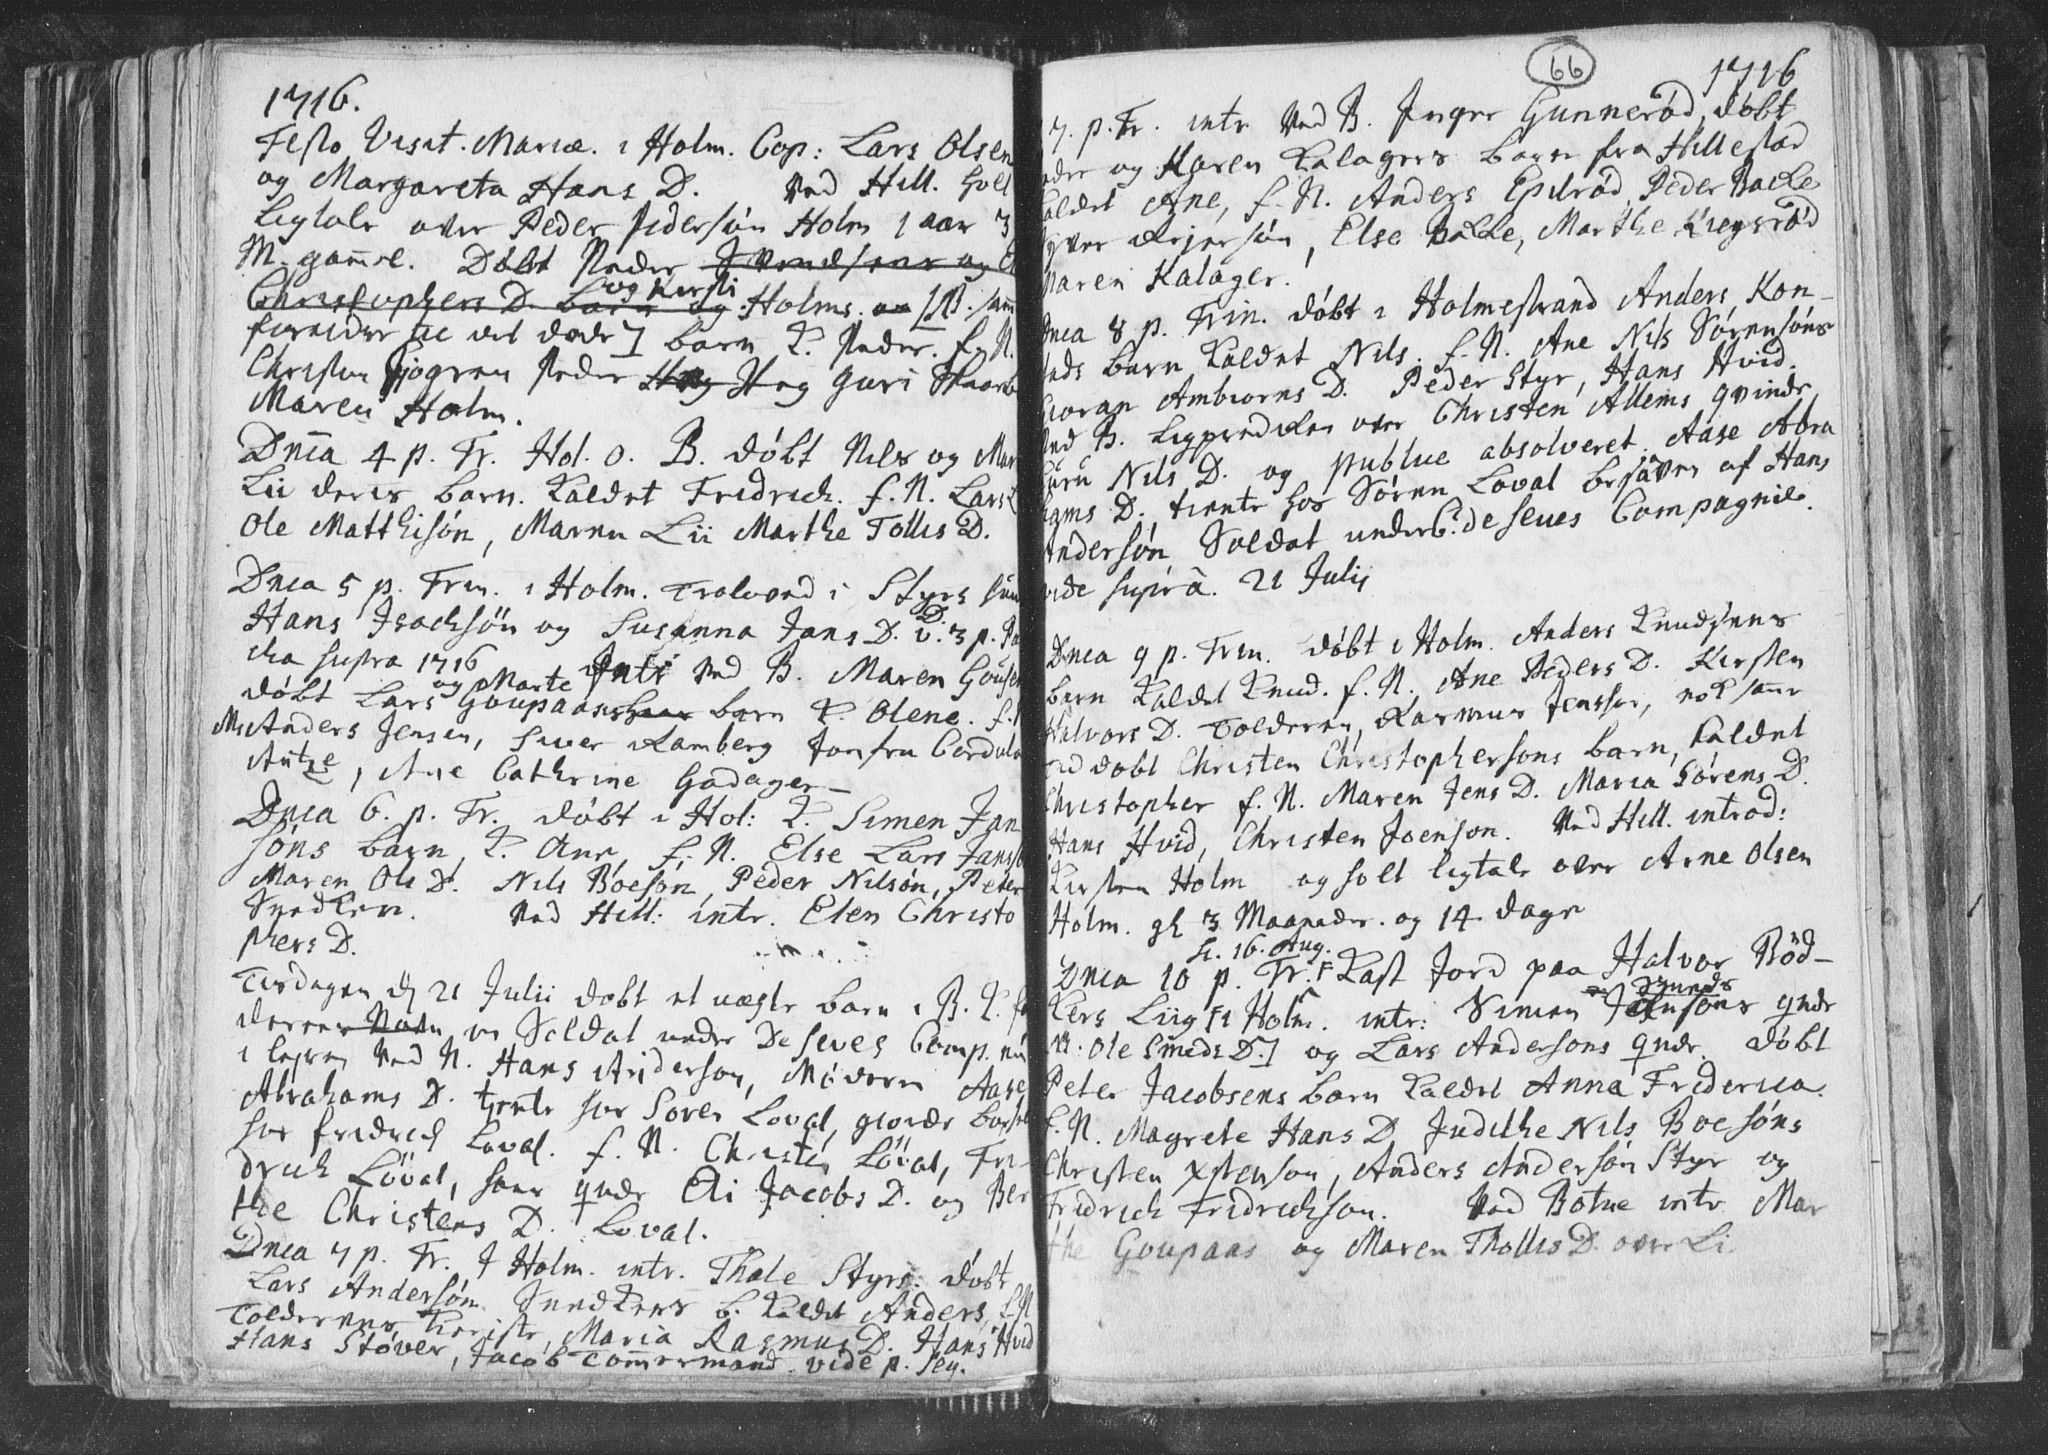 1716.
Festo Visit. Mariæ. i Holm. Cop: Lars Olsen
og Margareta Hans D. Ved Hill. holt
Ligtale over Peder Pedersøn Holm 1 aar 3
M. gamel. Døbt Peder Svendsens og
Christophers D. barn og og Kirsti Holms. [NB.
foreldre ec vel døde] barn K. Peder. f. N.
Christen Peder Hæg Guri
Maren Holm.
Dnica 4 p. Tr. Hol. o. B. døbt Nils og Mar
Lii deris barn. Kaldet Fridrich. f. N. Lars
Ole Matthisøn, Maren Lii Marthe Tollis D.
Dnica 5 p. Trin. i Holm. Troloved i Styrs
Hans Isachsøn og Susanna Jans D. v. D. 3 p.
cha supra 1716 Intr Ved B. Maren
døbt Lars og Marte Goupaas barn K. Olene. f. N
Anders Jensen, Siver Ramberg Jomfru Cordula
, Ane Cathrine Gadager
Dnica 6. p. Tr. døbt i Hol: K. Simen Jan
søns barn K. Ane, f. N. Else Lars
Maren Ols D. Nils Boesøn, Peder Nilsøn, Peter
Snedker. Ved Hill: intr. Elen Christo
phers D.
Tirsdagen d 21 Julii døbt et uægte barn i B. K.
Soldat under De Seves Comp. nu
i leyren Ved N. Hans Anderson, Moderen Aase
Abrahams D. tjente hos Soren Loval, giorde barsel
hos fridrich Loval. f. N. Christen Løval, Fri-
drich Løval, hans qvinde Eli Jacobs D. og Ber
the Christens D. Loval.
Dnica 7 p. Tr. I Holm. intr. Thale Styrs. døbt
Lars Andersøn Snedkers b. Kaldet Anders, f. N
Tolderens Maria Rasmus D. Hans Hvid
Hans Støver, Jacob Tømmermand. vide p. seq.
66
1716
7. p. Tr. intr Ved B. Inger Gunnerød, døbt
og Karen Kalagers barn fra Hillestad
Kaldet Ane, f. N. Anders Epilrød, Peder Bakke
Rejersøn, Else Bakke, Marthe
Maren Kalager.
Dnica 8 p. Trin. døbt i Holmestrand Anders Kon-
stads barn Kaldet Nils. f. N. Ane Nils Sørensøns
Giøran Ambiorns D. Peder Styr, Hans Hvid.
Ved B. Ligprediken over Christen Allems qvinde
Guru Nils D. og publice absolveret Aase Abra
hams D. tiente hos Søren Loval besåven af Hans
Andersøn Soldat under C. de Seues Compagnie.
vide suprà. 21 Julij
Dnica 9 p. Trin. døbt i Holm. Anders Knudsens
barn Kaldet Knud. f. N. Ane Peders D. Kirsten
Halvors D. Tolderen, Rasmus Jenssøn, nok samme
tid døbt Christen Christophersons barn, Kaldet
Christopher f. N. Maren Jens D. Maria Sørens D.
Hans Hvid, Christen Joenson. Ved Hill. introd:
Kirsten Holm og holt ligtale over Arne Olsen
Holm. gl 3 Maaneder. og 14 dage
Sc. 16. Aug.
Dnica 10 p. Tr. Kast Jord paa Halvor Bød-
kers Liig i Holm. intr: Simen Jansøns Smeds qvde
N: Ole Smeds D.] og Lars Andersons qvde. døbt
Peter Jacobsens barn Kaldet Anna Friderica.
f. N. Magrete Hans D. Judithe Nils Boesøns
Christen Xstenson, Anders Andersøn Styr og
Fridrich Fridrichson. Ved Botne intr Mar
the Goupaas og Maren Thollis D. over Li